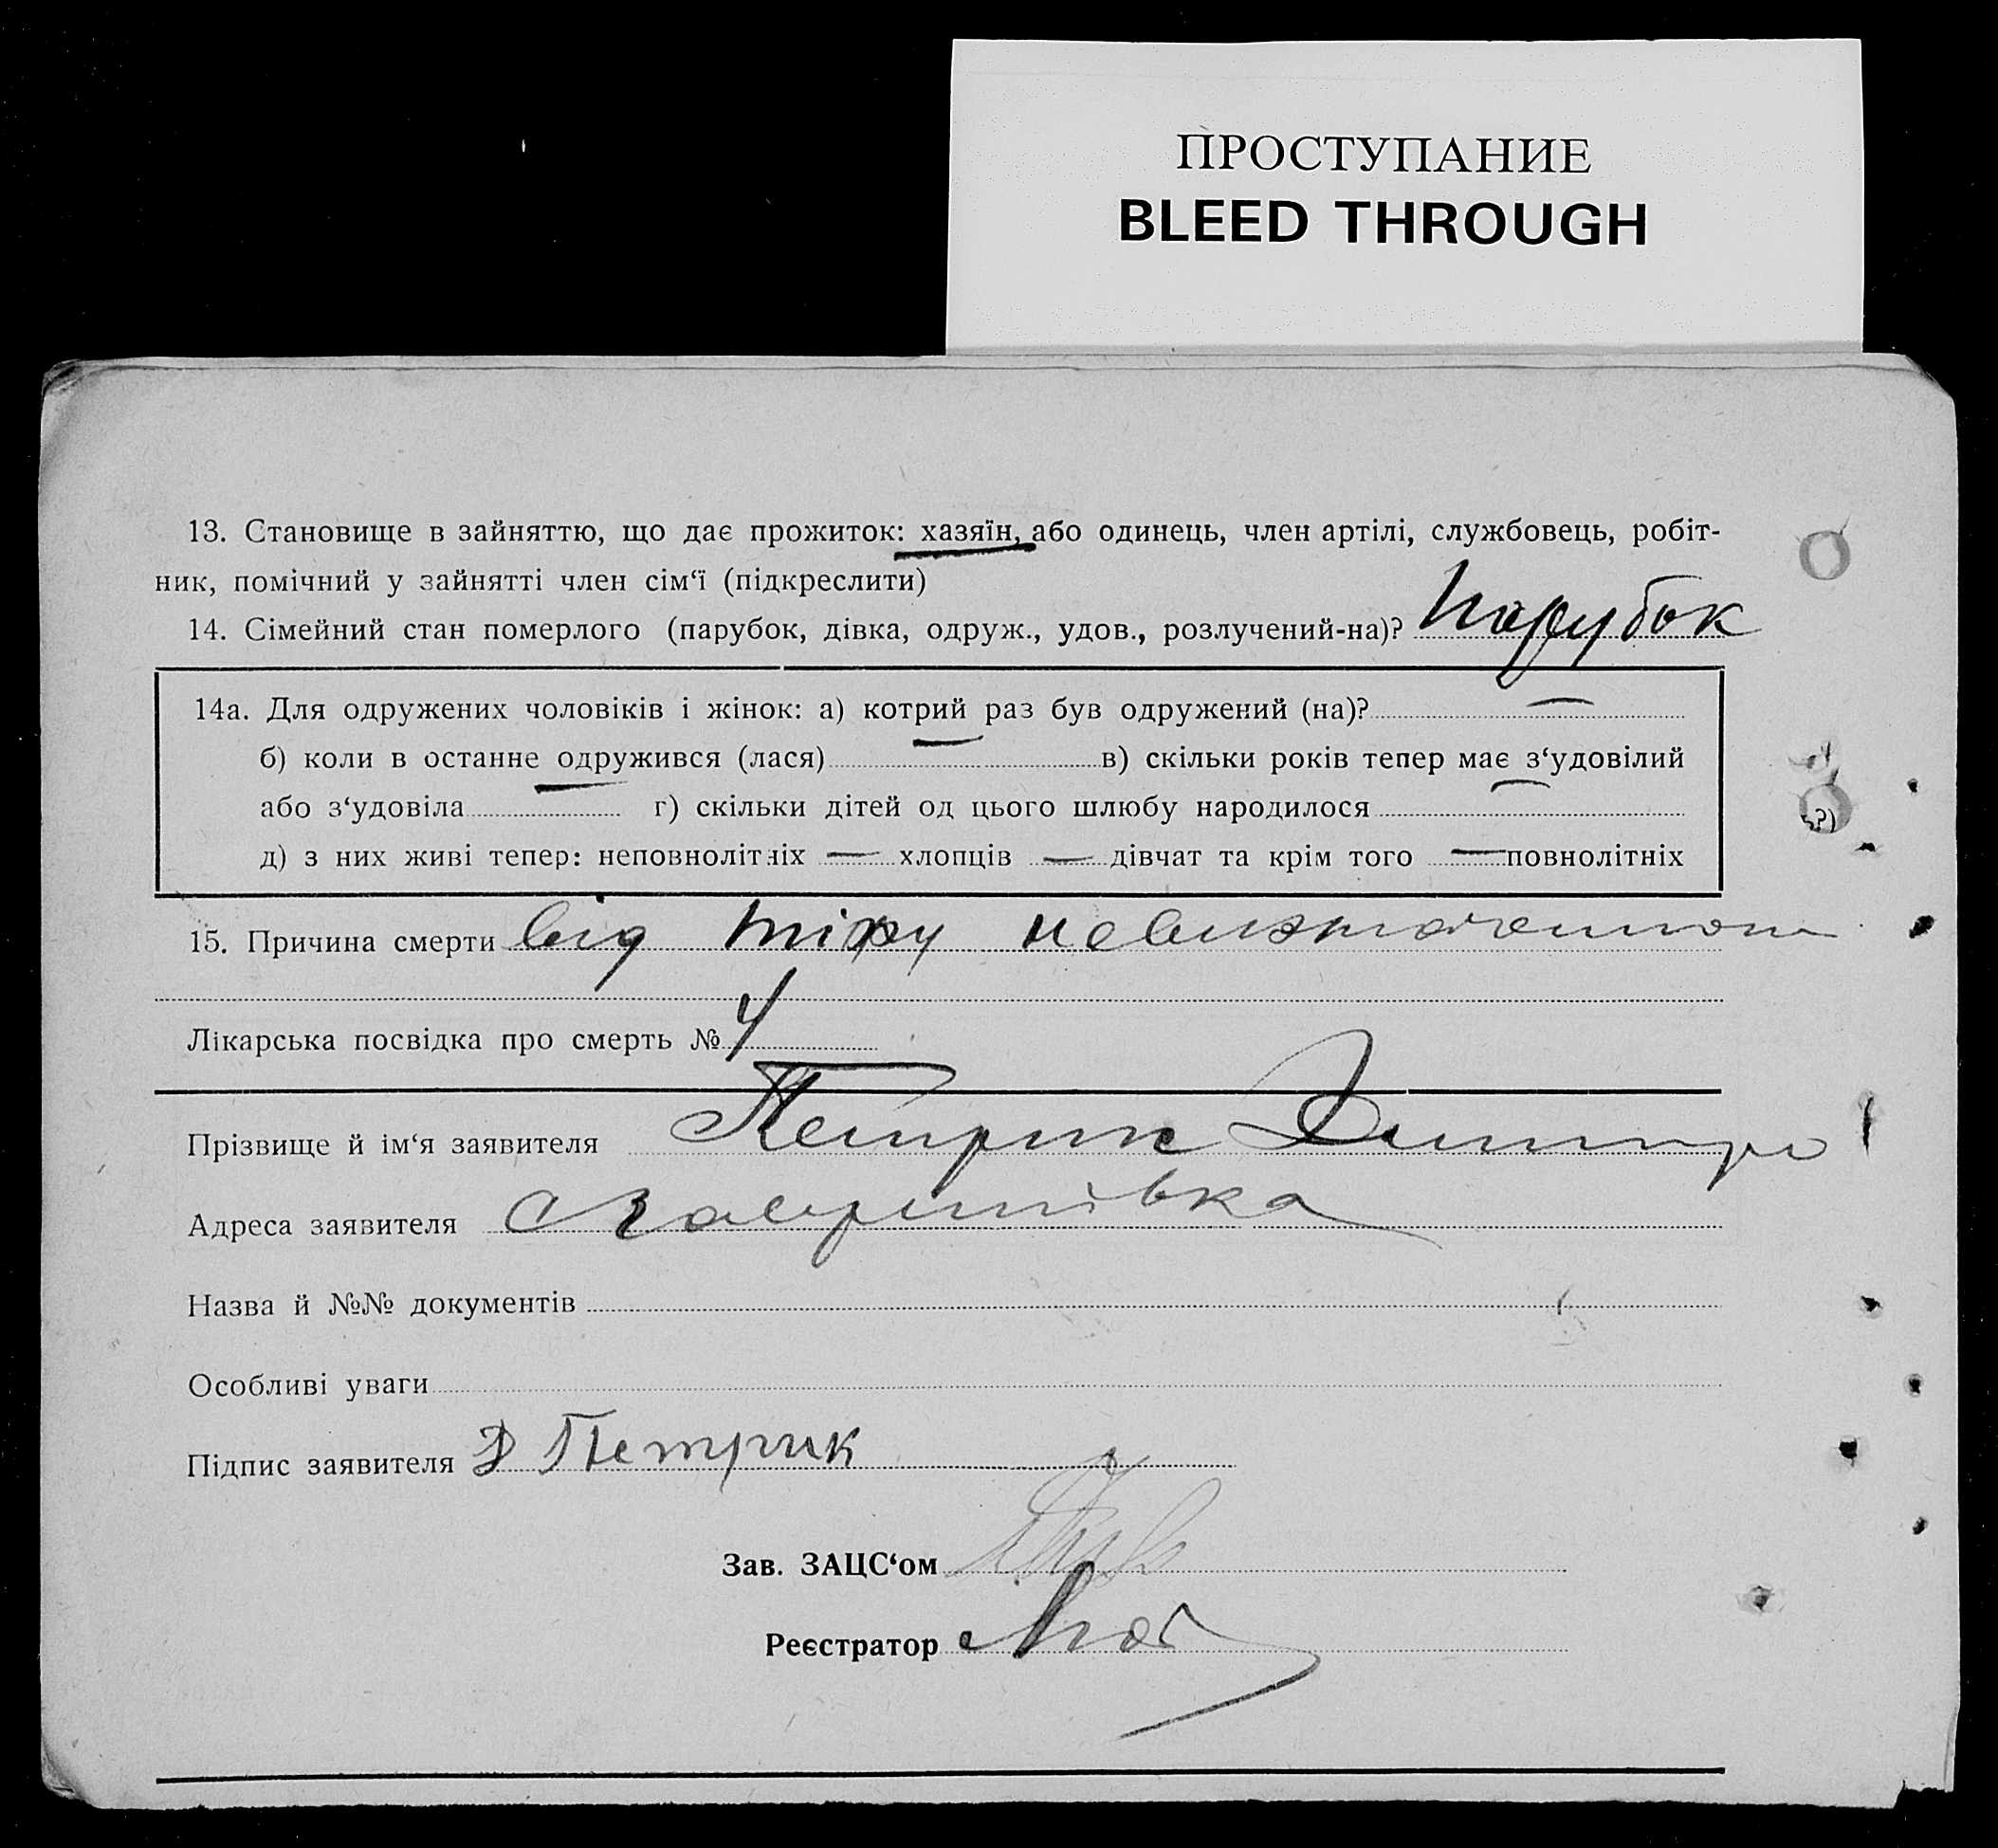 ПРОСТУПАНИЕ
BLEED THROUGH
13. Становище в зайняттю, що дає прожиток: хазяїн, або одинець, член артілі, службовець, робіт-
ник, помічний у зайнятті член сім‘ї (підкреслити)
14. Сімейний стан померлого (парубок, дівка, одруж., удов., розлучений-на)? Парубок
14а. Для одружених чоловіків і жінок: а) котрий раз був одружений (на)? —
б) коли в останнє одружився (лася) — в) скільки років тепер має з‘удовілий
або з‘удовіла — г) скільки дітей од цього шлюбу народилося —
д) з них живі тепер: неповнолітніх — хлопців — дівчат та крім того — повнолітніх
15. Причина смерти від тіфу
Лікарська посвідка про смерть № 4
Прізвище й ім‘я заявителя Петрик Дмитро
Адреса заявителя с Гавришівка
Назва й №№ документів
Особливі уваги
Підпис заявителя Д Петрик
Зав. ЗАЦС‘ом
Реєстратор